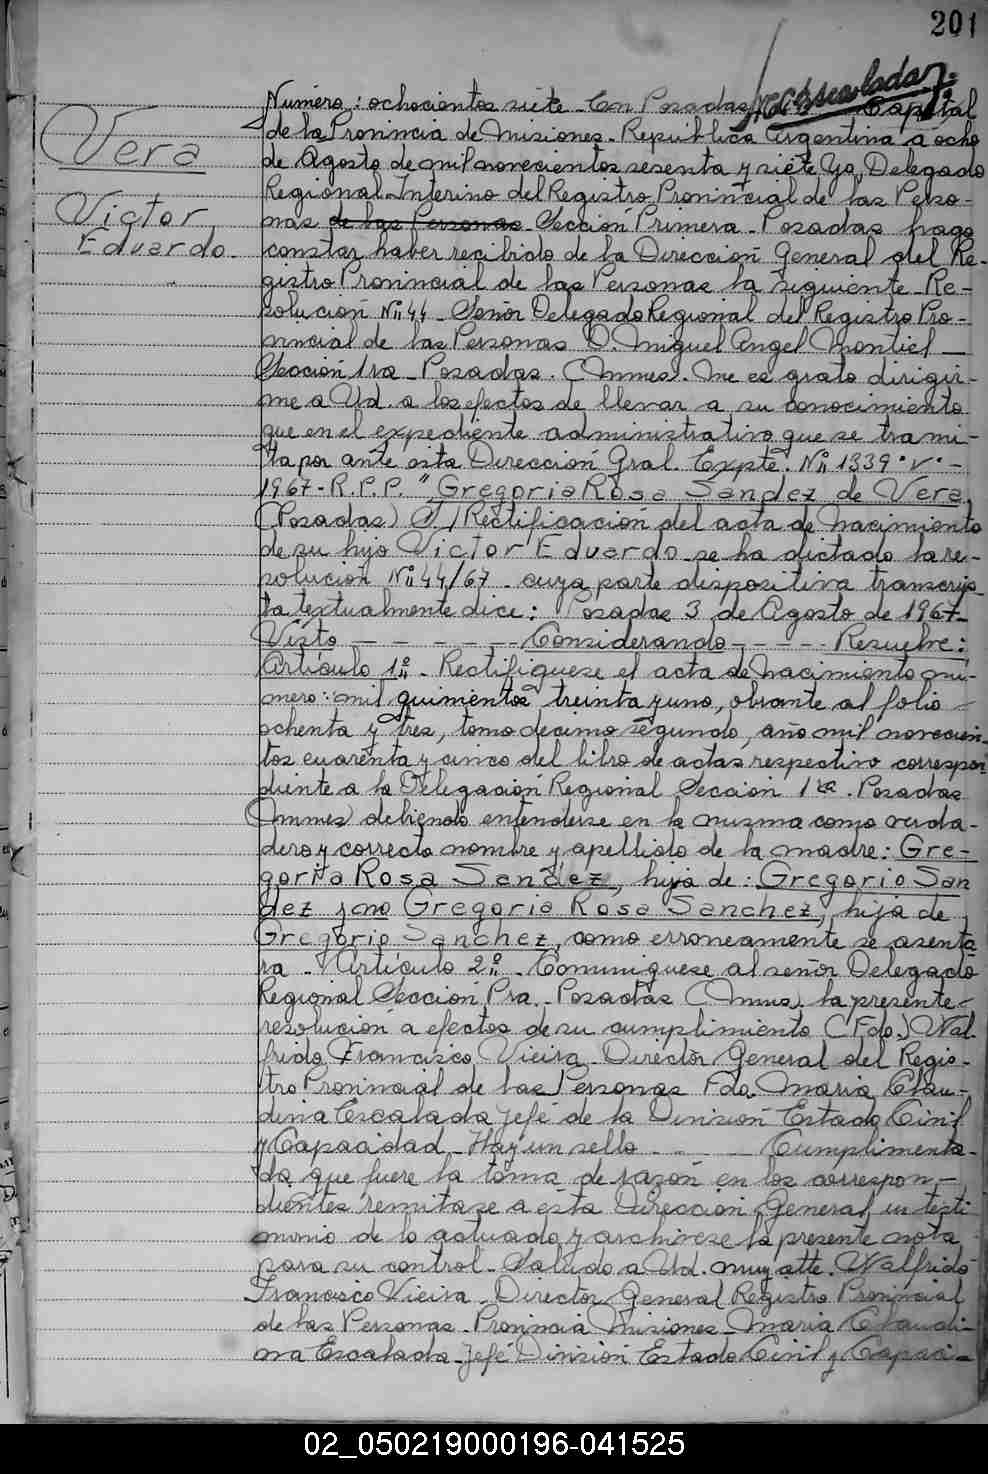 201
Vera
Victor
Eduardo.
Número: ochocientos siete - En Posadas, Capital
de la Provincia de Misiones - República Argentina a ocho
de Agosto de mil novecientos sesenta y siete Yo, Delegado
Regional Interino del Registro Provincial de las Perso-
nas de las Personas Sección Primera - Posadas hago
constar haber recibido de la Dirección General del Re-
gistro Provincial de las Personas la siguiente - Re-
solución Nº 44 - Señor Delegado Regional del Registro Pro-
vincial de las Personas D. Miguel Angel Montiel —
Sección 1ra - Posadas. (Mnes). Me es grato dirigir-
me a Ud. a los efectos de llevar a su conocimiento
que en el expediente administrativo que se trami-
ta por ante esta Dirección Gral. Expte. Nº 1339 "V" -
1967 - R.P.P. "Gregoria Rosa Sandez de Vera
(Posadas) S/ Rectificación del acta de nacimiento
de su hijo Victor Eduardo se ha dictado la re-
solución Nº 44/67 - cuya parte dispositiva transcrip-
ta textualmente dice: Posadas 3 de Agosto de 1967 -
Visto - - - - - - Considerando - - - - Resuelve:
Artículo 1º - Rectifíquese el acta de nacimiento nú-
mero: mil quinientos treinta y uno, obrante al folio
ochenta y tres, tomo décimo segundo, año mil novecien-
tos cuarenta y cinco del libro de actas respectivo correspon-
diente a la Delegación Regional Sección 1ra. Posadas
(Mnes) debiendo entenderse en la misma como verda-
dero y correcto nombre y apellido de la madre: Gre-
goria Rosa Sandez, hija de: Gregorio San
dez y no Gregoria Rosa Sanchez, hija de
Gregorio Sanchez, como erroneamente se asenta
ra - Artículo 2º - Comuníquese al señor Delegado
Regional Sección Pra. - Posadas (Mnes). la presente
resolución a efectos de su cumplimiento (Fdo.) Wal-
frido Francisco Vieira - Director General del Regis-
tro Provincial de las Personas Fdo. Maria Clau-
dina Escalada Jefe de la División Estado Civil
y Capacidad - Hay un sello - - - - Cumplimenta-
da que fuere la toma de razón en los correspon-
dientes remitase a esta Dirección General, un testi
monio de lo actuado y archívese la presente nota
para su control - Saludo a Ud. muy atte. Walfrido
Francisco Vieira - Director General Registro Provincial
de las Personas - Provincia Misiones - Maria Claudi-
na Escalada - Jefe División Estado Civil y Capaci-
02_050219000196-041525